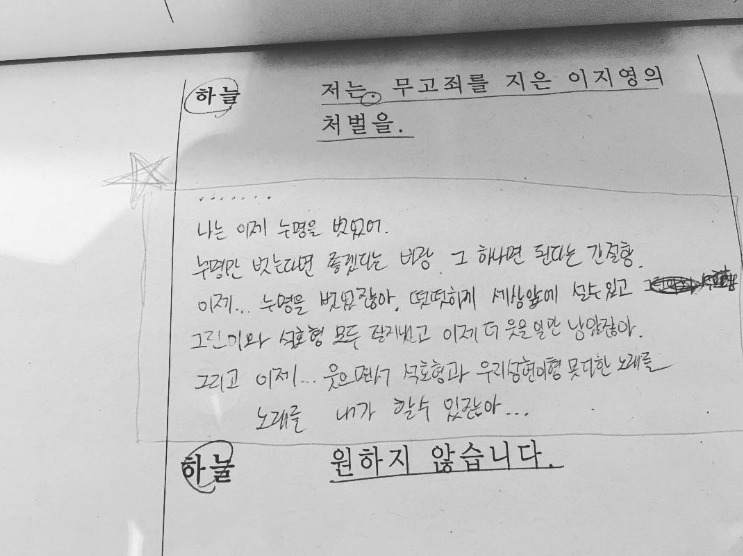 하늘 저는, 무고죄를 지은 이지영의
처벌을.
.......
나는 이제 누명을 벗었어.
누명만 벗는다면 좋겠다는 바람, 그 하나면 된다는 간절함.
이제... 누명을 벗었잖아. 떳떳하게 세상앞에 설수있고
석호형 모두 이제 더 웃을일만 남았잖아.
그리고 이제... 웃으면서 석호형과 우리상현이형 못다한 노래를
노래를 내가 할수 있잖아...
하늘 원하지 않습니다.